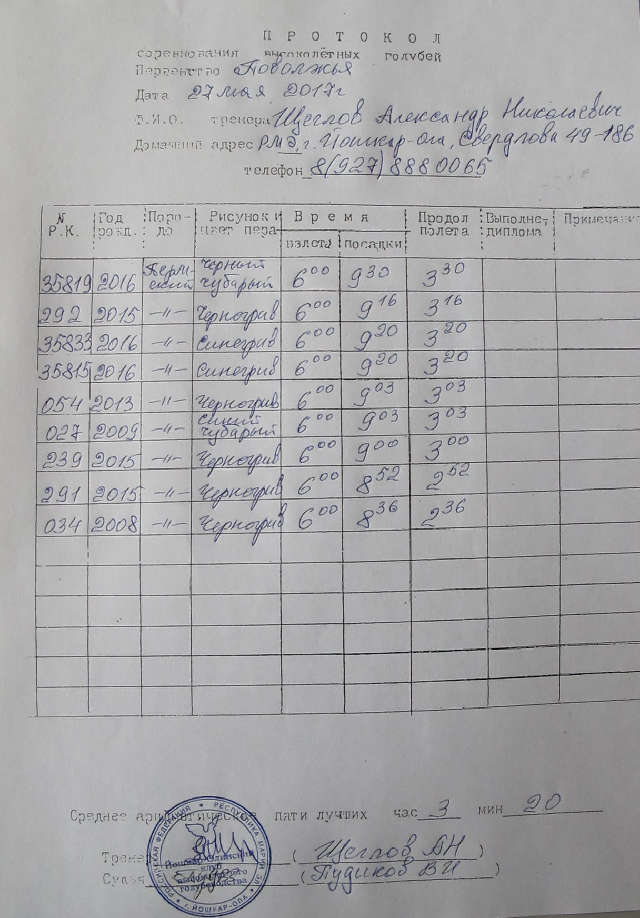 П Р О Т О К О Л
соревнования высоколётных голубей
Первенство Поволжья
Дата 27 мая 2017г
Ф.И.О. тренера Щеглов Александр Николаевич
Домашний адрес РМЭ, г. Йошкар-ола, Свердлова 49-186
телефон 8(927)8880065
N Р.К. Год рожд. Поро-да Рисунок и цвет пера Время взлета посадки Продол полета Выполнет, диплома Примечание
35819 2016 Перм-ский Черный чубарый 6 00 9 30 3 30
292 2015 -"- Черногрив 6 00 9 16 3 16
35833 2016 -"- Синегрив 6 00 9 20 3 20
35815 2016 -"- Синегрив 6 00 9 20 3 20
054 2013 -"- Черногрив 6 00 9 03 3 03
027 2009 -"- Синий чубарый 6 00 9 03 3 03
239 2015 -"- Черногрив 6 00 9 00 3 00
291 2015 -"- Черногрив 6 00 8 52 2 52
034 2008 -"- Черногрив 6 00 8 36 2 36
Среднее арифметическое пяти лучших час 3 мин 20
Тренер ( Щеглов АН )
Судья ( Пудиков ВИ )
РОССИЙСКАЯ ФЕДЕРАЦИЯ ★ РЕСПУБЛИКА МАРИЙ ЭЛ
Йошкар-Олинский
клуб
голубеводства
г. ЙОШКАР-ОЛА